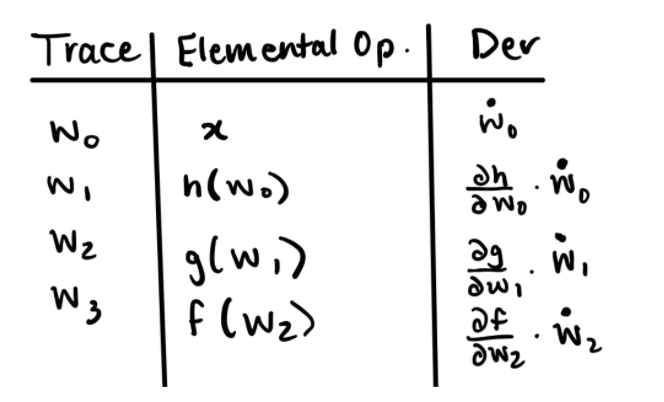 Trace Elemental Op. Der
w₀ x ẇ₀
w₁ h(w₀) ∂h/∂w₀ · ẇ₀
w₂ g(w₁) ∂g/∂w₁ · ẇ₁
w₃ f(w₂) ∂f/∂w₂ · ẇ₂